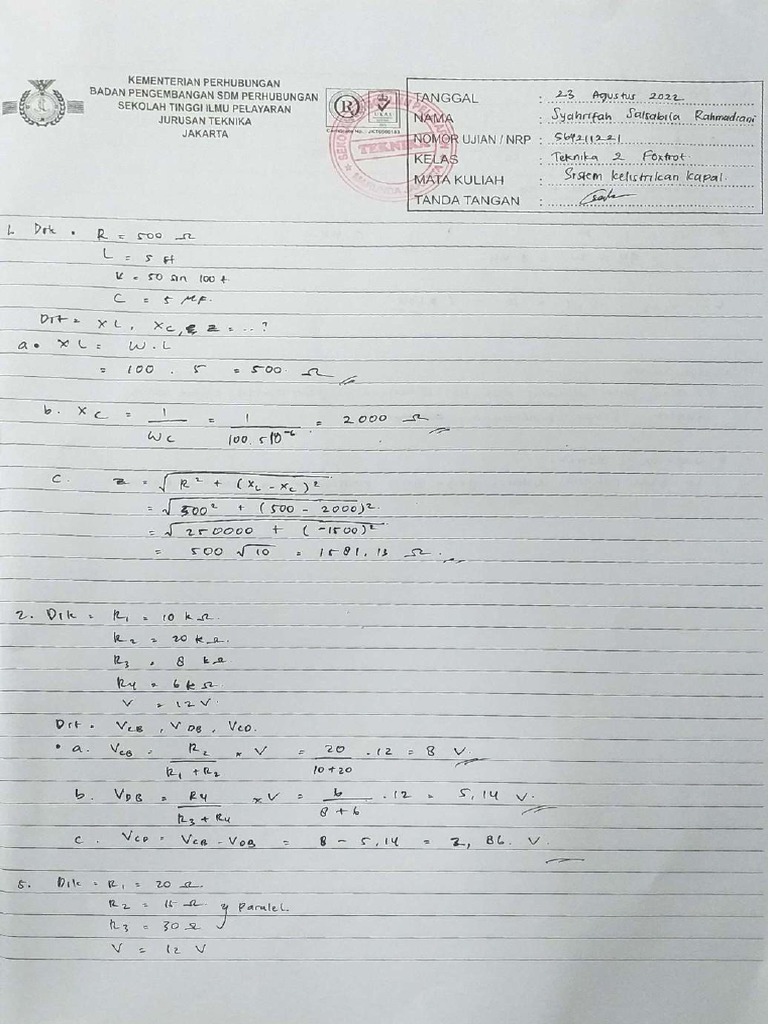 KEMENTERIAN PERHUBUNGAN
BADAN PENGEMBANGAN SDM PERHUBUNGAN
SEKOLAH TINGGI ILMU PELAYARAN
JURUSAN TEKNIKA
JAKARTA
TANGGAL : 23 Agustus 2022
NAMA : Syahrifah Salsabila Rahmadiani
NOMOR UJIAN / NRP : 564211221
KELAS : Teknika 2 Foxtrot.
MATA KULIAH : Sistem kelistrikan kapal.
TANDA TANGAN :
TEKNIKA
1. Dik = R = 500 Ω
L = 5 H
V = 50 sin 100 t
C = 5 μF.
Dit = XL, XC, Z = ...?
a. XL = W.L
= 100 . 5 = 500 Ω
b. XC = 1/WC = 1/100.5 10⁻⁶ = 2000 Ω
c. Z = √R² + (XL - XC)²
= √500² + (500 - 2000)²
= √250000 + (-1500)²
= 500 √10 = 1581,13 Ω.
2. Dik = R1 = 10 kΩ.
R2 = 20 kΩ.
R3 = 8 kΩ
R4 = 6 kΩ.
V = 12 V.
Dit = VCB, VDB, VCD.
a. VCB = R2/R1 + R2 × V = 20/10+20 . 12 = 8 V.
b. VDB = R4/R3 + R4 × V = 6/8 + 6 . 12 = 5,14 V.
c. VCD = VCB - VDB = 8 - 5,14 = 2,86 V.
5. Dik = R1 = 20 Ω.
R2 = 15 Ω } Paralel.
R3 = 30 Ω
V = 12 V